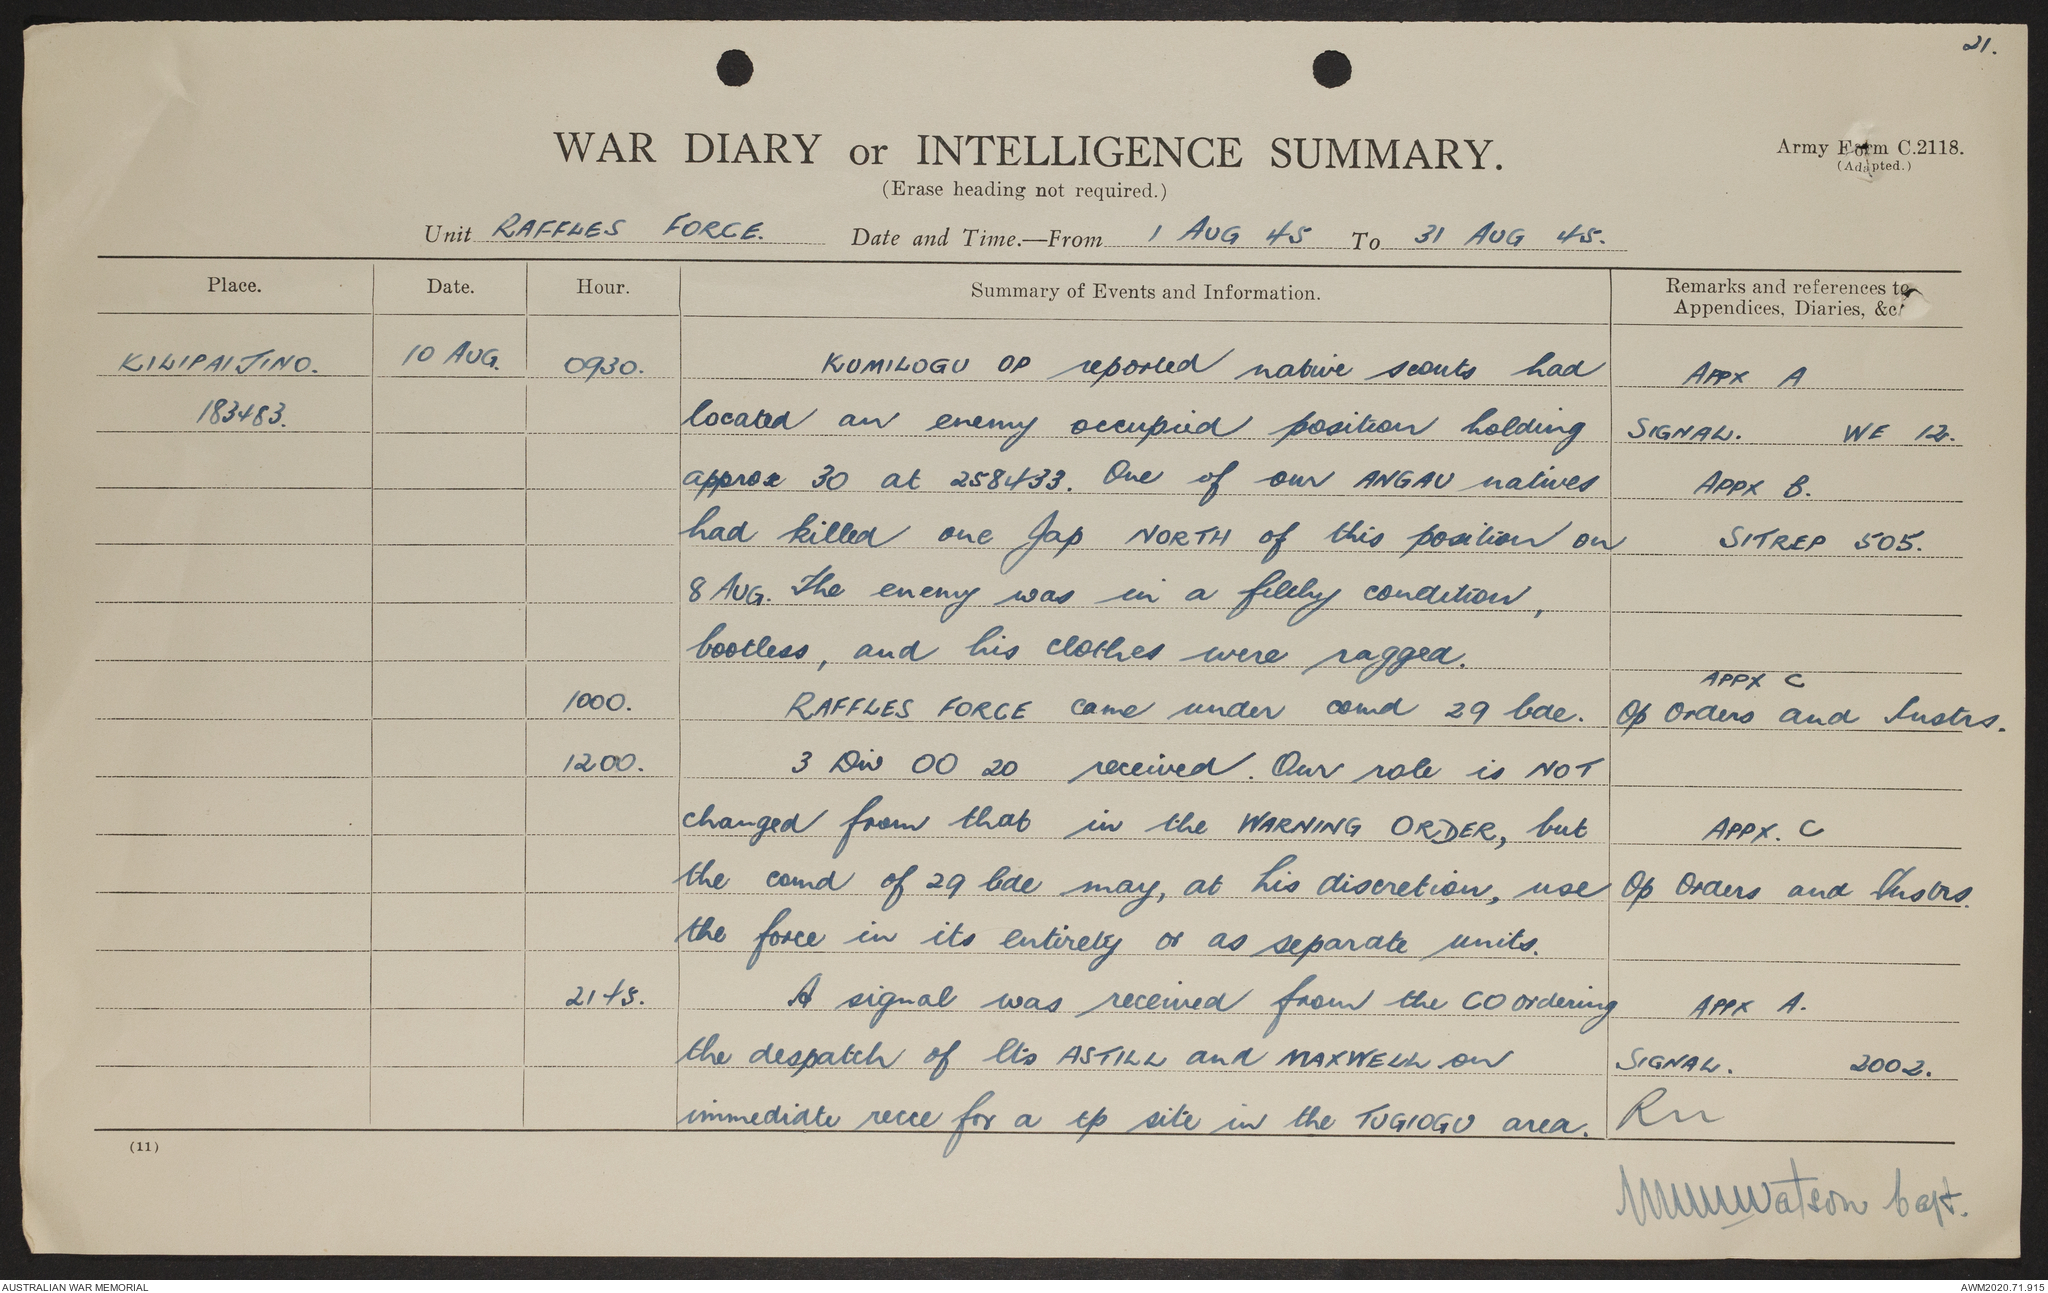 21.
WAR DIARY or INTELLIGENCE SUMMARY.
Army Form C.2118.
(Adapted.)
(Erase heading not required.)
Unit RAFFLES FORCE. Date and Time.—From 1 AUG 45 To 31 AUG 45.
Place. Date. Hour. Summary of Events and Information. Remarks and references to
Appendices, Diaries, &c.
KILIPAIJINO. 10 AUG. 0930. KUMILOGU OP reported native scouts had APPX A
183483. located an enemy occupied position holding SIGNAL. WE 12.
approx 30 at 258433. One of our ANGAU natives APPX B.
had killed one Jap NORTH of this position on SITREP 505.
8 AUG. The enemy was in a filthy condition,
bootless, and his clothes were ragged.
APPX C
1000. RAFFLES FORCE came under comd 29 bde. Op Orders and Instrs.
1200. 3 Div OO 20 received. Our role is NOT
changed from that in the WARNING ORDER, but APPX. C
the comd of 29 bde may, at his discretion, use Op Orders and Instrs.
the force in its entirety or as separate units.
2145. A signal was received from the CO ordering APPX A.
the despatch of Lts ASTILL and MAXWELL on SIGNAL. 2002.
immediate recce for a tp site in the TUGIOGU area.
(11)
Watson Capt.
AUSTRALIAN WAR MEMORIAL
AWM2020.71.915